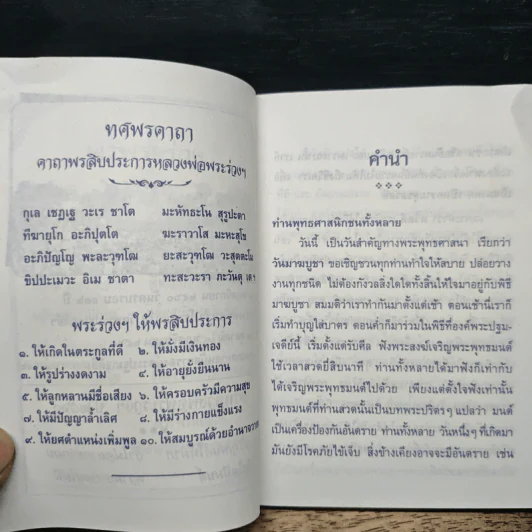 ทศพรคาถา
คาถาพรสิบประการหลวงพ่อพระร่วงฯ
กุเล เชฏเฐ วะเร ชาโต มะหัทธะโน สุรูปะตา
ทีฆายุโก อะภิปุตโต ฆะราวาโส มะหะสุโข
อะภิปัญโญ พะละวุฑโฒ ยะสะวุฑโฒ
ขิปปะเมวะ อิเม ชาตา ทะสะวะรา ภะวันตุ เต ฯ
พระร่วงฯ ให้พรสิบประการ
๑. ให้เกิดในตระกูลที่ดี ๒. ให้มั่งมีเงินทอง
๓. ให้รูปร่างงดงาม ๔. ให้อายุยั่งยืนนาน
๕. ให้ลูกหลานมีชื่อเสียง ๖. ให้ครอบครัวมีความสุข
๗. ให้มีปัญญาล้ำเลิศ ๘. ให้มีร่างกายแข็งแรง
๙. ให้ยศตำแหน่งเพิ่มพูล ๑๐. ให้สมบูรณ์ด้วยอำนาจ
คำนำ
ท่านพุทธศาสนิกชนทั้งหลาย
วันนี้ เป็นวันสำคัญทางพระพุทธศาสนา เรียกว่า
วันมาฆบูชา ขอเชิญชวนทุกท่านทำใจให้สบาย ปล่อยวาง
งานทุกชนิด ไม่ต้องกังวลสิ่งใดทั้งสิ้นให้ใจมาอยู่กับพิธี
มาฆบูชา สมมติว่าเราทำกันมาตั้งแต่เช้า ตอนเช้านี้เราก็
เริ่มทำบุญใส่บาตร ตอนค่ำก็มาร่วมในพิธีที่องค์พระปฐม-
เจดีย์นี้ เริ่มตั้งแต่รับศีล ฟังพระสงฆ์เจริญพระพุทธมนต์
ใช้เวลาสวดยี่สิบนาที ท่านทั้งหลายได้มาฟังก็เท่ากับ
ได้เจริญพระพุทธมนต์ไปด้วย เพียงแต่ตั้งใจฟังเท่านั้น
พุทธมนต์ที่ท่านสวดนั้นเป็นบทพระปริตรๆ แปลว่า มนต์
เป็นเครื่องป้องกันอันตราย ท่านทั้งหลาย วันหนึ่งๆ ที่เกิดมา
มันยังมีโรคภัยไข้เจ็บ สิ่งข้างเคียงอาจจะมีอันตราย เช่น